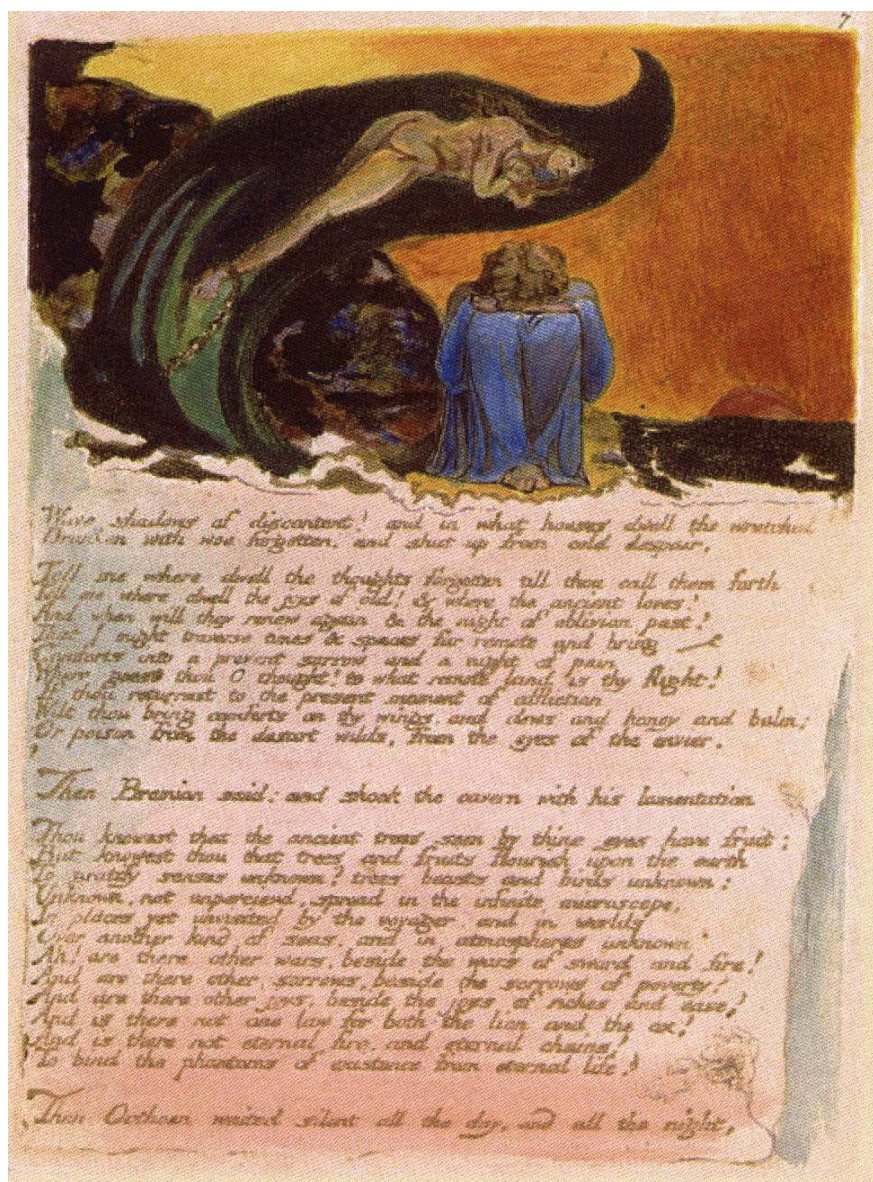 7
Wave shadows of discontent! and in what houses dwell the wretched
Drunken with woe forgotten, and shut up from cold despair,
Tell me where dwell the thoughts forgotten till thou call them forth
Tell me where dwell the joys of old! & where the ancient loves!
And when will they renew again & the night of oblivion past!
That I might traverse times & spaces far remote and bring
Comforts into a present sorrow and a night of pain
Where goest thou O thought! to what remote land is thy flight!
If thou returnest to the present moment of affliction
Wilt thou bring comforts on thy wings, and dews and honey and balm;
Or poison from the desart wilds, from the eyes of the envier.
Then Bromion said: and shook the cavern with his lamentation
Thou knowest that the ancient trees seen by thine eyes have fruit;
But knowest thou that trees and fruits flourish upon the earth
To gratify senses unknown! trees beasts and birds unknown:
Unknown, not unpercievd, spread in the infinite microscope,
In places yet unvisited by the voyager and in worlds
Over another kind of seas, and in atmospheres unknown
Ah! are there other wars, beside the wars of sword and fire!
And are there other sorrows, beside the sorrows of poverty!
And are there other joys, beside the joys of riches and ease!
And is there not one law for both the lion and the ox!
And is there not eternal fire, and eternal chains!
To bind the phantoms of existence from eternal life!
Then Oothoon waited silent all the day, and all the night,